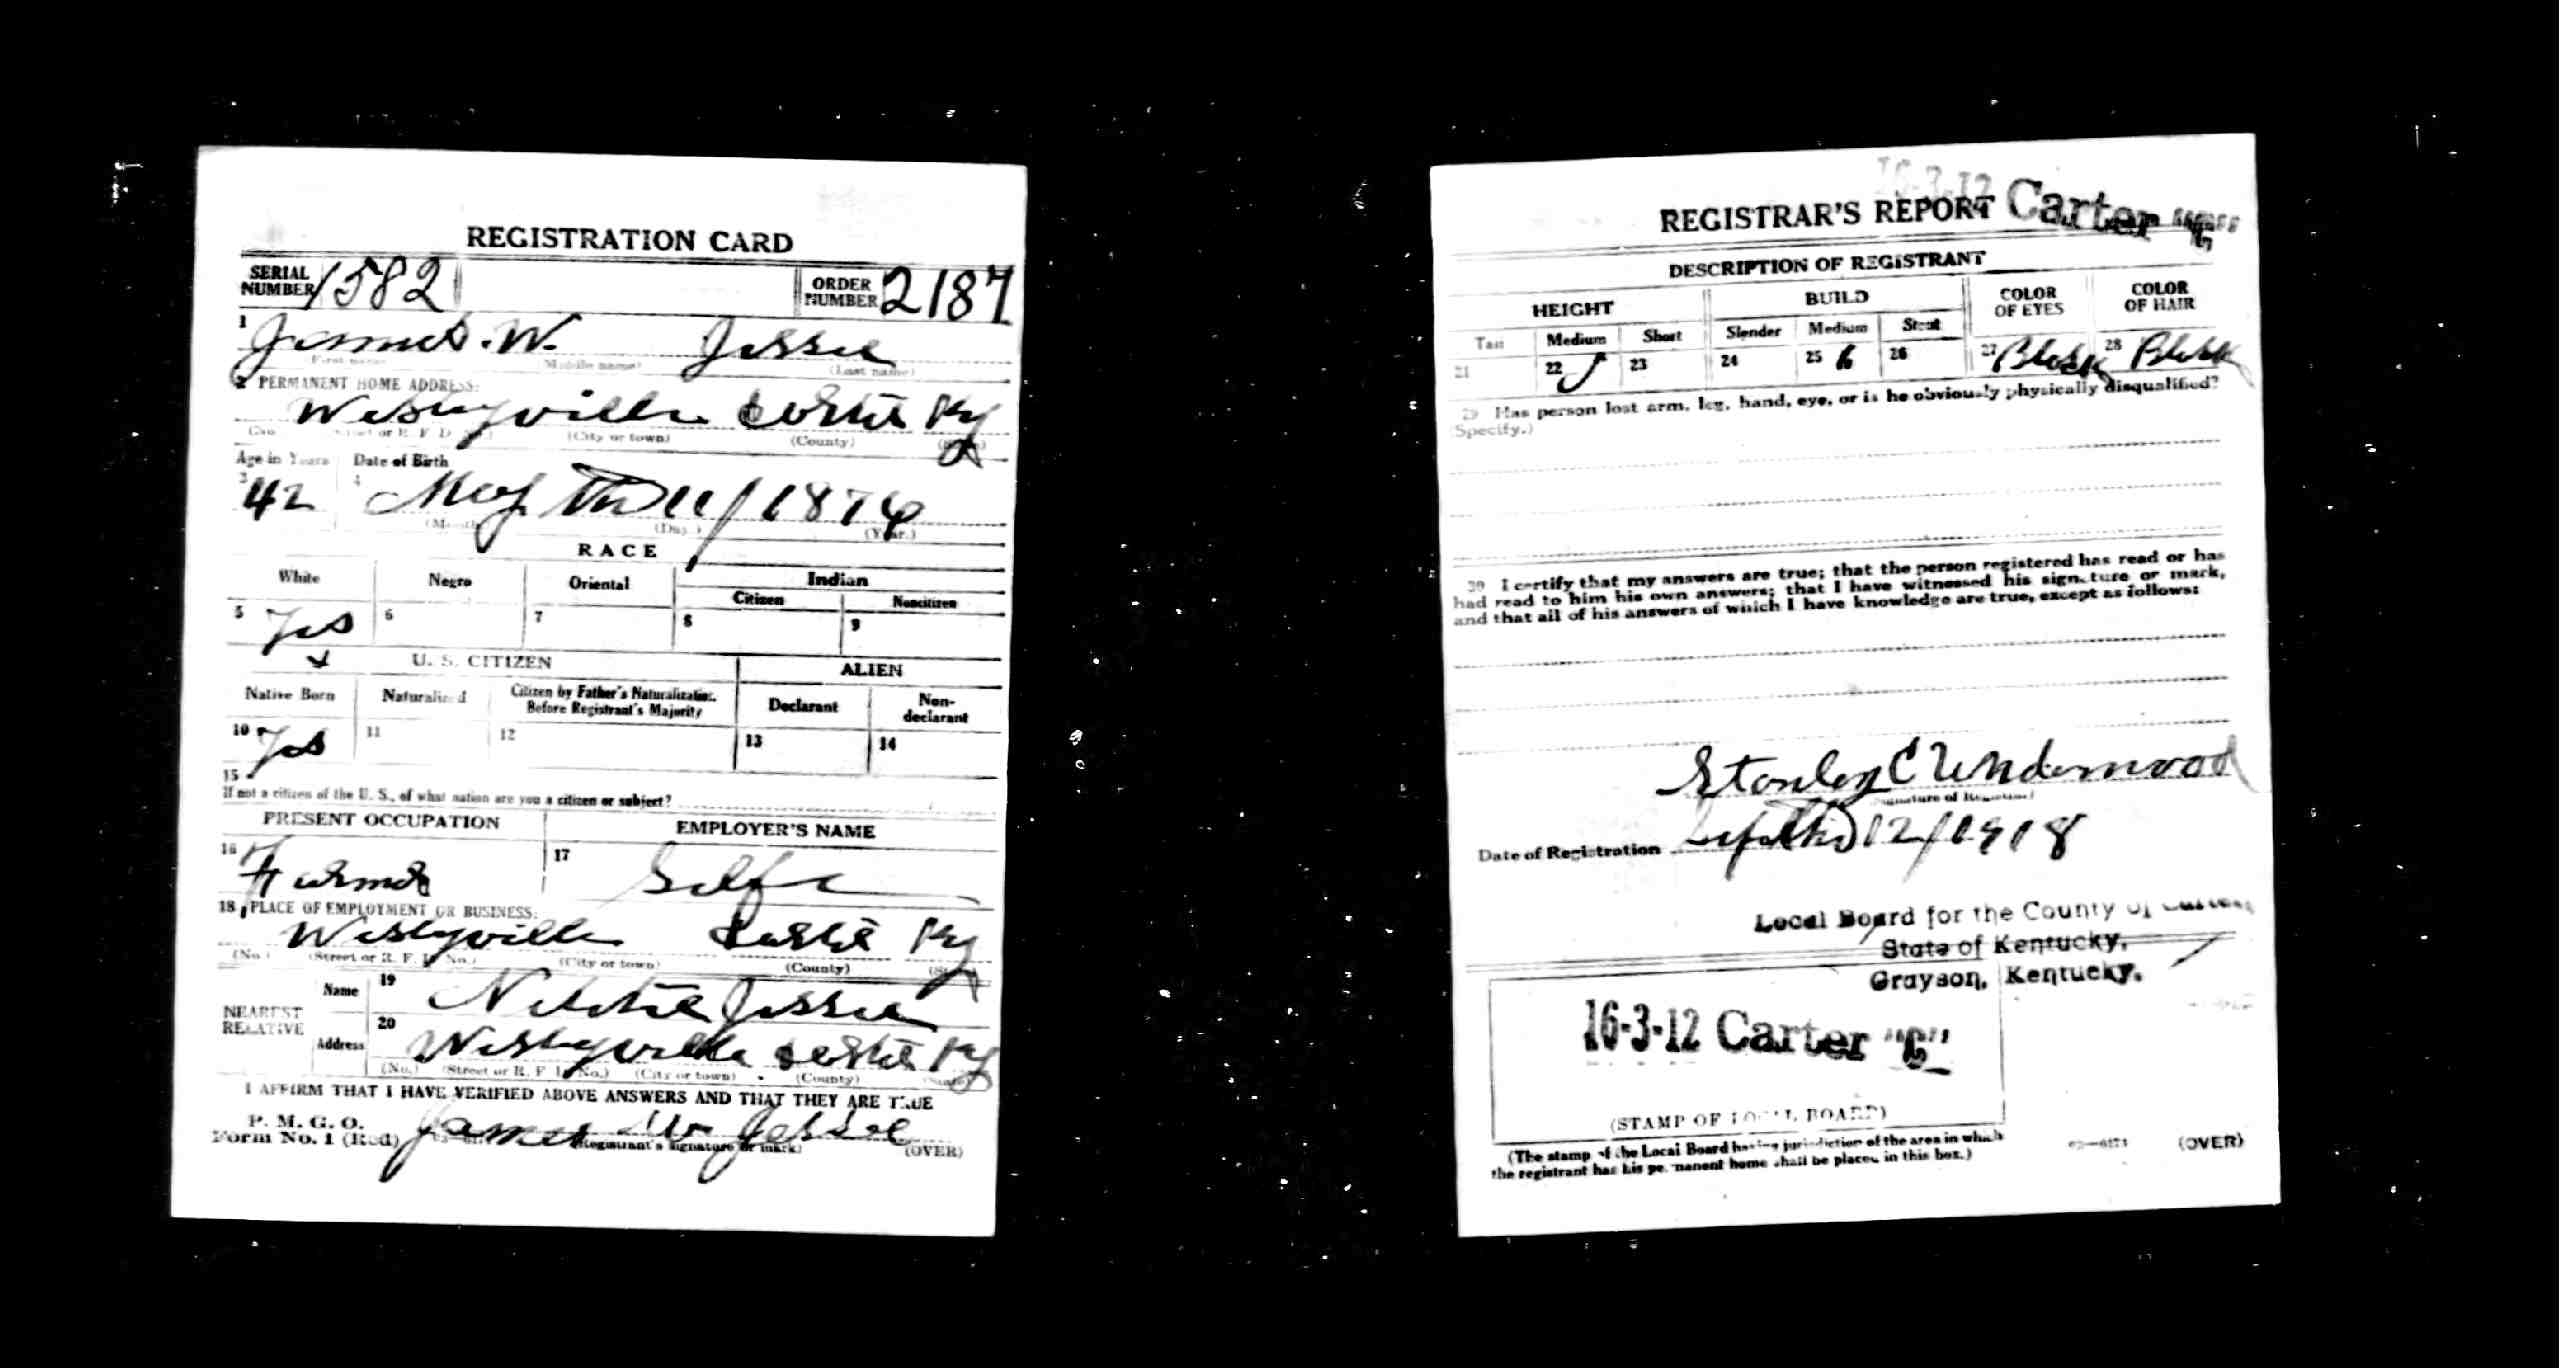 REGISTRATION CARD
SERIAL NUMBER 1582 ORDER NUMBER 2187
1 James. W. Jessee
(First name) (Middle name) (Last name)
2 PERMANENT HOME ADDRESS:
Wesleyville Carter Ky
(No.) (Street or R. F. D. No.) (City or town) (County) (State)
Age in Years Date of Birth
3 42 4 May the 11/1876
(Month) (Day.) (Year.)
RACE
White Negro Oriental Indian
Citizen Noncitizen
5 Yes 6 7 8 9
U. S. CITIZEN ALIEN
Native Born Naturalized Citizen by Father's Naturalization Before Registrant's Majority Declarant Non-declarant
10 Yes 11 12 13 14
15
If not a citizen of the U. S., of what nation are you a citizen or subject?
PRESENT OCCUPATION EMPLOYER'S NAME
16 Farmer 17 Self
18 PLACE OF EMPLOYMENT OR BUSINESS:
Wesleyville Carter Ky
(No.) (Street or R. F. D. No.) (City or town) (County) (State)
NEAREST RELATIVE
Name 19 Jessee
Address 20 Wesleyville Carter Ky
(No.) (Street or R. F. D. No.) (City or town) (County) (State)
I AFFIRM THAT I HAVE VERIFIED ABOVE ANSWERS AND THAT THEY ARE TRUE
P. M. G. O.
Form No. 1 (Red) James W Jessee
(Registrant's signature or mark) (OVER)
16-3-12 Carter "C"
REGISTRAR'S REPORT
DESCRIPTION OF REGISTRANT
HEIGHT BUILD COLOR OF EYES COLOR OF HAIR
Tall Medium Short Slender Medium Stout
21 22 23 24 25 26 27 Black 28 Black
29 Has person lost arm, leg, hand, eye, or is he obviously physically disqualified?
(Specify.)
30 I certify that my answers are true; that the person registered has read or has
had read to him his own answers; that I have witnessed his signature or mark,
and that all of his answers of which I have knowledge are true, except as follows:
Stanley C Underwood
(Signature of Registrar)
Date of Registration Sept the 12/1918
Local Board for the County of Carter,
State of Kentucky,
Grayson, Kentucky.
16-3-12 Carter "C"
(STAMP OF LOCAL BOARD)
(The stamp of the Local Board having jurisdiction of the area in which
the registrant has his permanent home shall be placed in this box.)
(OVER)